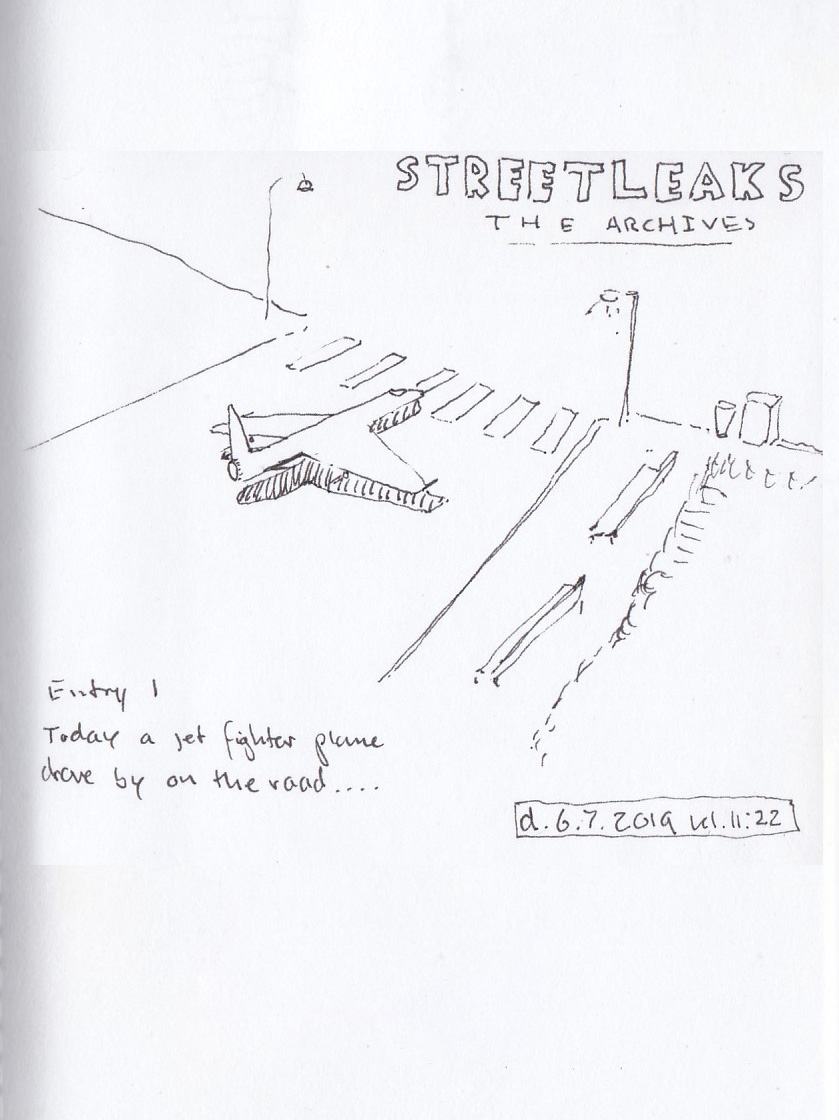 STREETLEAKS
THE ARCHIVES
Entry 1
Today a jet fighter plane
drove by on the road....
d. 6.7. 2019 kl. 11:22